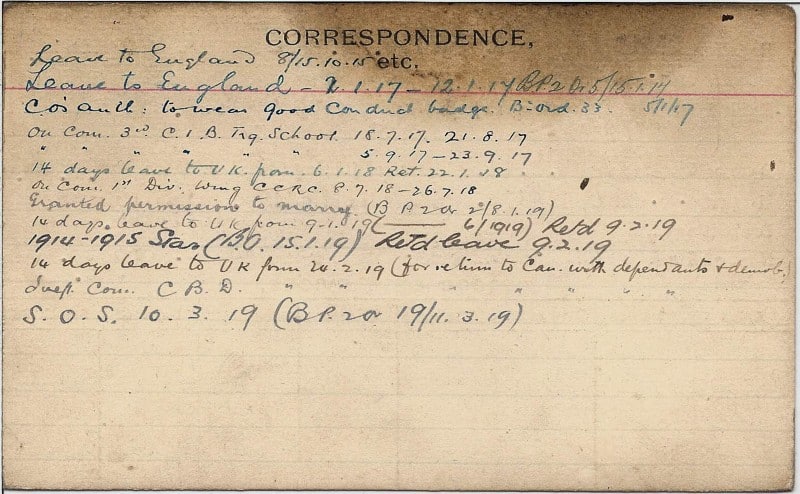 CORRESPONDENCE,
etc.
Leave to England 8/15.10.15
Leave to England - 2.1.17 - 12.1.17 B.P.2 Or 5/15.1.17
C.O's auth: to wear good Conduct badge. B: ord. 33. 5/1/17
On Com. 3rd C. I. B. Trg. School 18.7.17. 21.8.17
" " " " " 5.9.17 - 23.9.17
14 days leave to U.K. from 6.1.18 Ret. 22.1.18
On Com. 1st Div. Wing C C R C. 8.7.18 - 26.7.18
Granted permission to marry (B P. 2 or 2/8.1.19)
14 days leave to UK from 9.1.19 ( 6/1919) Retd 9.2.19
1914-1915 Star (B.O. 15.1.19) Ret'd leave 9.2.19
14 days leave to UK from 24.2.19 (for return to Can. with dependants & demob.)
Com. C B D. " " " " " "
S.O.S. 10.3.19 (B P. 2 or 19/11.3.19)